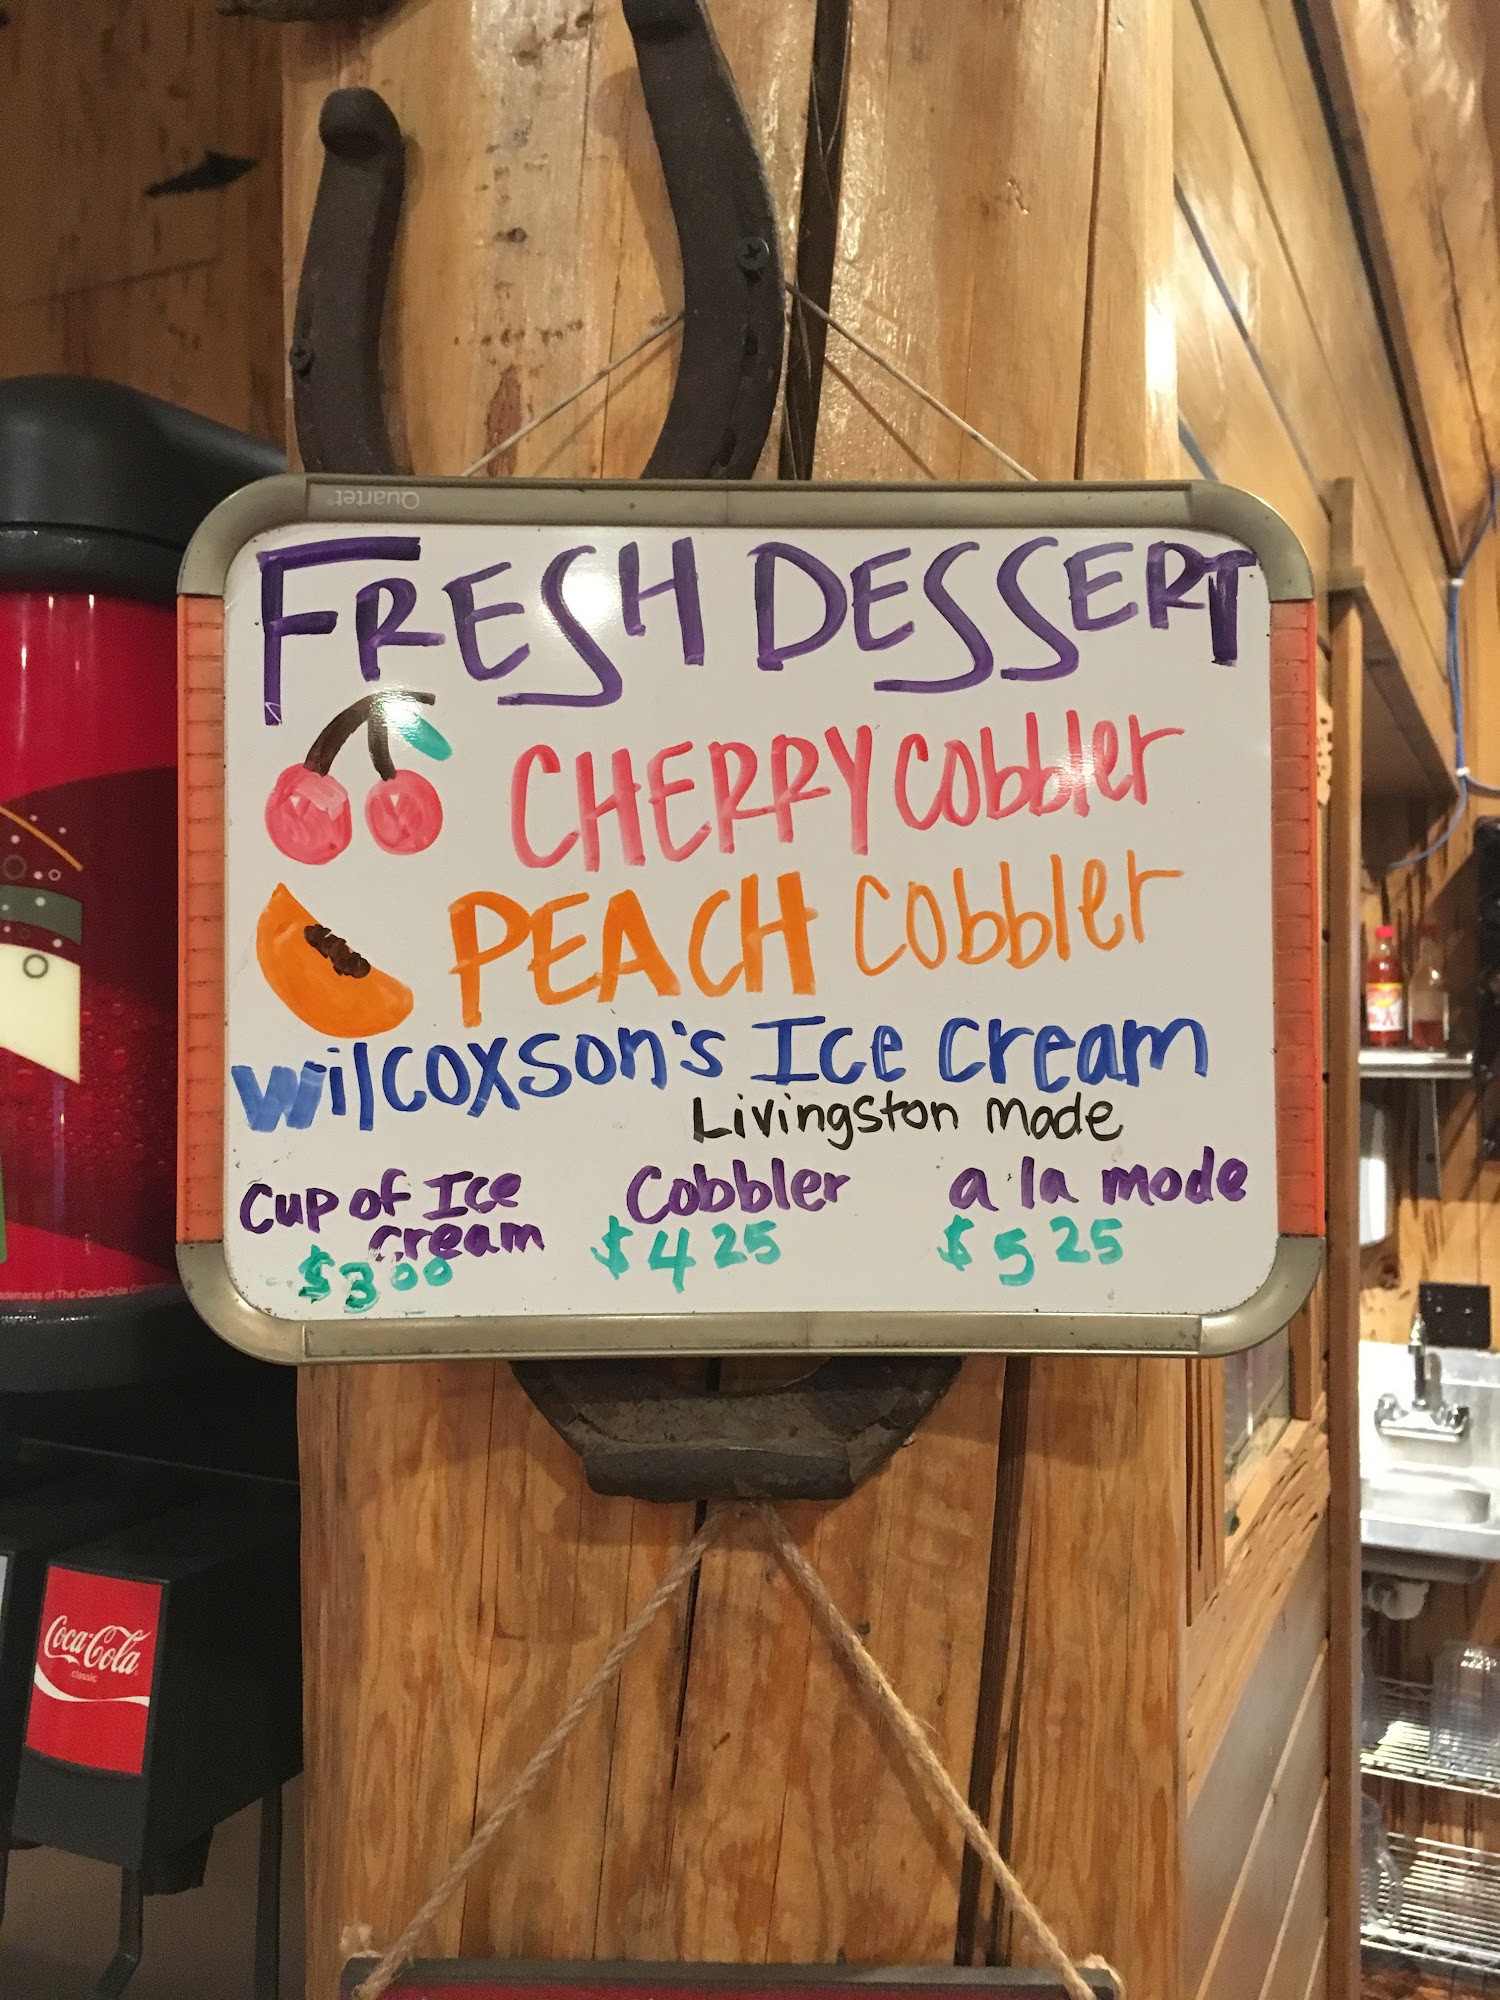 Quartet
FRESH DESSERT
CHERRY cobbler
PEACH cobbler
Wilcoxson's Ice Cream
Livingston Made
Cup of Ice
Cream
$3.00
Cobbler
$4 25
a la mode
$5 25
ademarks of The Coca-Cola Co
Coca-Cola
classic